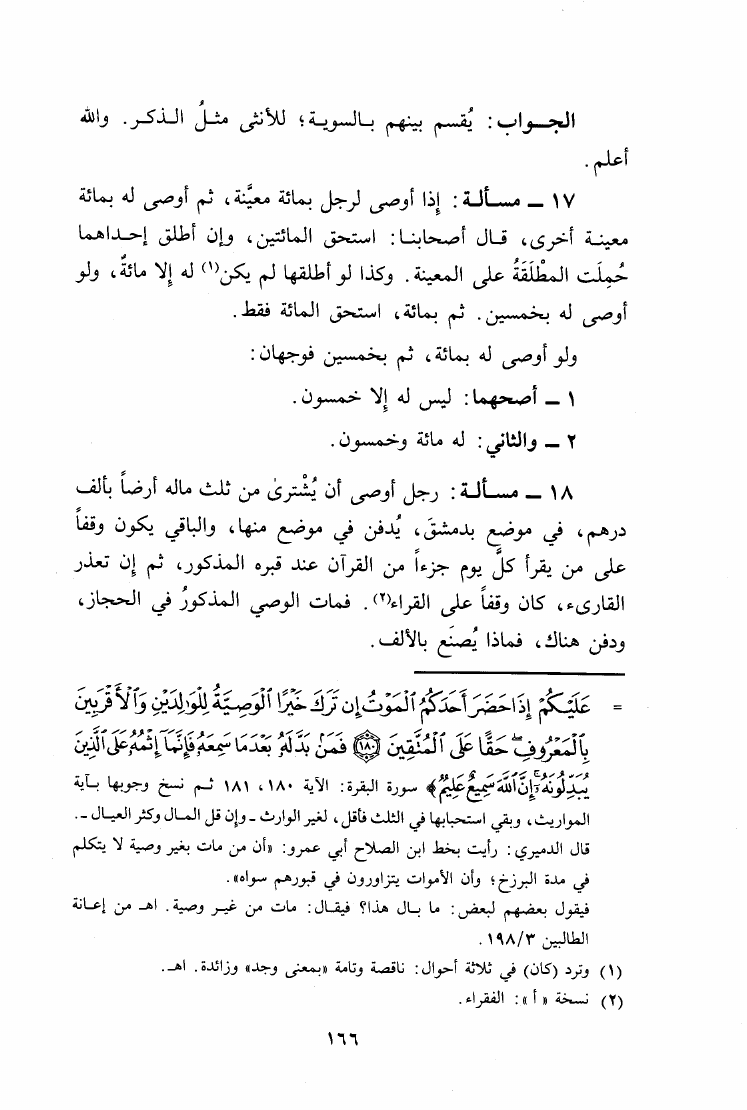 الجـواب: يُقسم بينهم بـالسويـة؛ للأنثى مثـلُ الـذكـر. والله
أعلم.
١٧ ـ مسـألـة: إذا أوصى لرجل بمائة معيَّنة، ثم أوصى له بمائة
معينـة أخرى، قـال أصحابنـا: استحق المائتين، وإن أطلق إحـداهما
حُمِلَت المطْلَقَةُ على المعينة. وكذا لو أطلقها لم يكن(١) له إلا مائةٌ، ولو
أوصى له بخمسين. ثم بمائة، استحق المائة فقط.
ولو أوصى له بمائة، ثم بخمسين فوجهان:
١ ـ أصحهما: ليس له إلا خمسون.
٢ ـ والثاني: له مائة وخمسون.
١٨ ـ مسـألـة: رجل أوصى أن يُشْترىٰ من ثلث ماله أرضاً بألف
درهم، في موضع بدمشقَ، يُدفن في موضع منها، والباقي يكون وقفاً
على من يقرأ كلَّ يوم جزءاً من القرآن عند قبره المذكور، ثم إن تعذر
القارىء، كان وقفاً على القراء(٢). فمات الوصي المذكورُ في الحجاز،
ودفن هناك، فماذا يُصنَع بالألف.
= عَلَيْكُمْ إِذَا حَضَرَ أَحَدَكُمُ ٱلْمَوْتُ إِن تَرَكَ خَيْرًا ٱلْوَصِيَّةُ لِلْوَٰلِدَيْنِ وَٱلْأَقْرَبِينَ
بِٱلْمَعْرُوفِ حَقًّا عَلَى ٱلْمُتَّقِينَ ١٨٠ فَمَنۢ بَدَّلَهُۥ بَعْدَمَا سَمِعَهُۥ فَإِنَّمَآ إِثْمُهُۥ عَلَى ٱلَّذِينَ
يُبَدِّلُونَهُۥٓ إِنَّ ٱللَّهَ سَمِيعٌ عَلِيمٌ﴾ سورة البقرة: الآية ١٨٠، ١٨١ ثـم نسخ وجوبها بـآية
المواريث، وبقي استحبابها في الثلث فأقل، لغير الوارث ـ وإن قل المـال وكثر العيـال ـ.
قال الدميري: رأيت بخط ابن الصلاح أبي عمرو: «أن من مات بغير وصية لا يتكلم
في مدة البرزخ؛ وأن الأموات يتزاورون في قبورهم سواه».
فيقول بعضهم لبعض: ما بـال هذا؟ فيقـال: مات من غيـر وصية. اهـ من إعـانة
الطالبين ١٩٨/٣.
(١) وترد (كان) في ثلاثة أحوال: ناقصة وتامة «بمعنى وجد» وزائدة. اهـ.
(٢) نسخة «أ»: الفقراء.
١٦٦